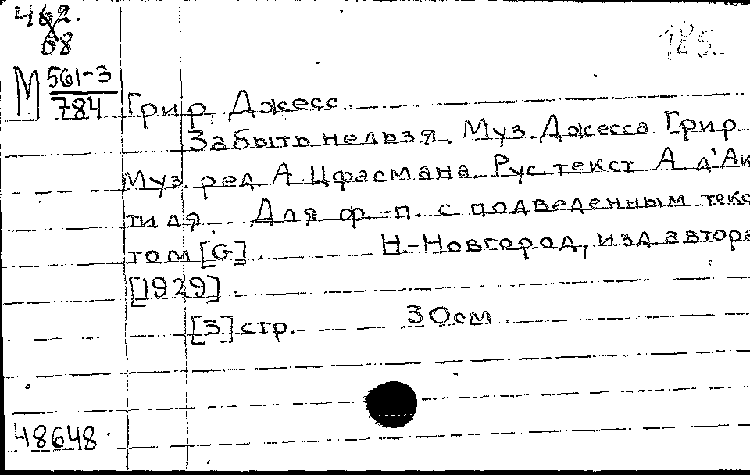 462.
68
185.
М 561-3
784
Грир, Джесс.
Забыть нельзя. Муз. Джесса Грир.
Муз. ред. А. Цфасмана. Рус. текст А. д'Ак
тиля. Для ф.-п. с подведенным текс
том [G]. Н.-Новгород, изд. автора
[1929].
[3] стр. 30см.
48648.